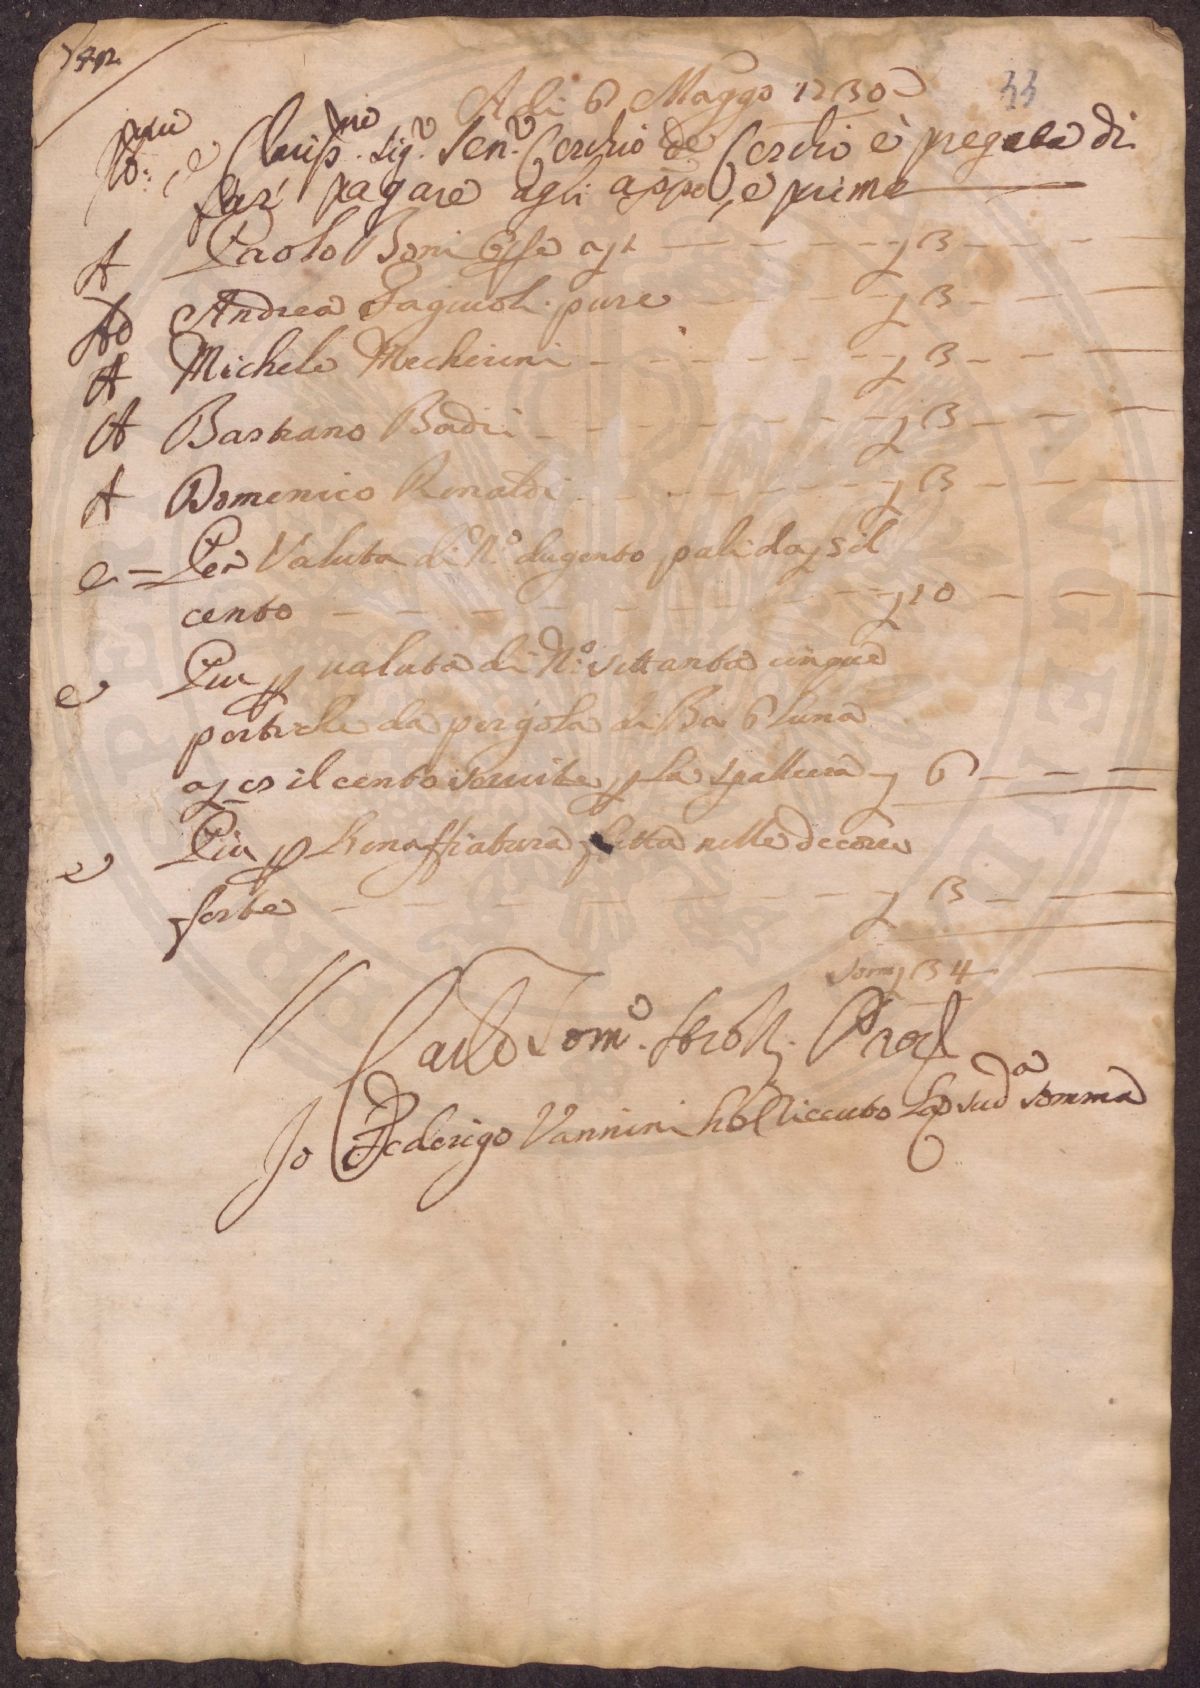 A di 6 Maggo 1730
33
Sig.r Sen.r Cerchio de Cerchi è pregato di
far pagare agli app.o, e prima
A Paolo Boni Esse a 3
Ad Andrea Fagiuoli pure 3
A Michele Mecherini 3
A Bastiano Badii 3
A Domenico Renaldi 3
e = Per Valuta di N.o dugento pali da 5 il
cento 10
e Piu p valuta di N.o settanta cinque
pertiche da pergola di Ba 6 luna
a 8 il cento servite p la spalliera 6
e Piu p Renaffiatura fatta nelle decorse
feste 3
Som 34
Carlo Tom.o
Io Federigo Vannini ho riceuto La sud.a somma